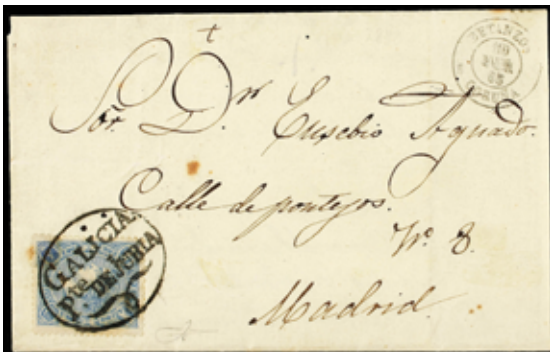 BETANZOS
CORUÑA
Sor. Dn. Eusebio Aguado.
Calle de pontejos.
Nº 8.
Madrid.
GALICIA.
Pte. DE JUBIA